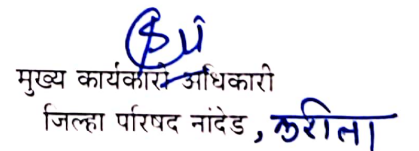 मुख्य कार्यकारी अधिकारी
जिल्हा परिषद नांदेड, करीता